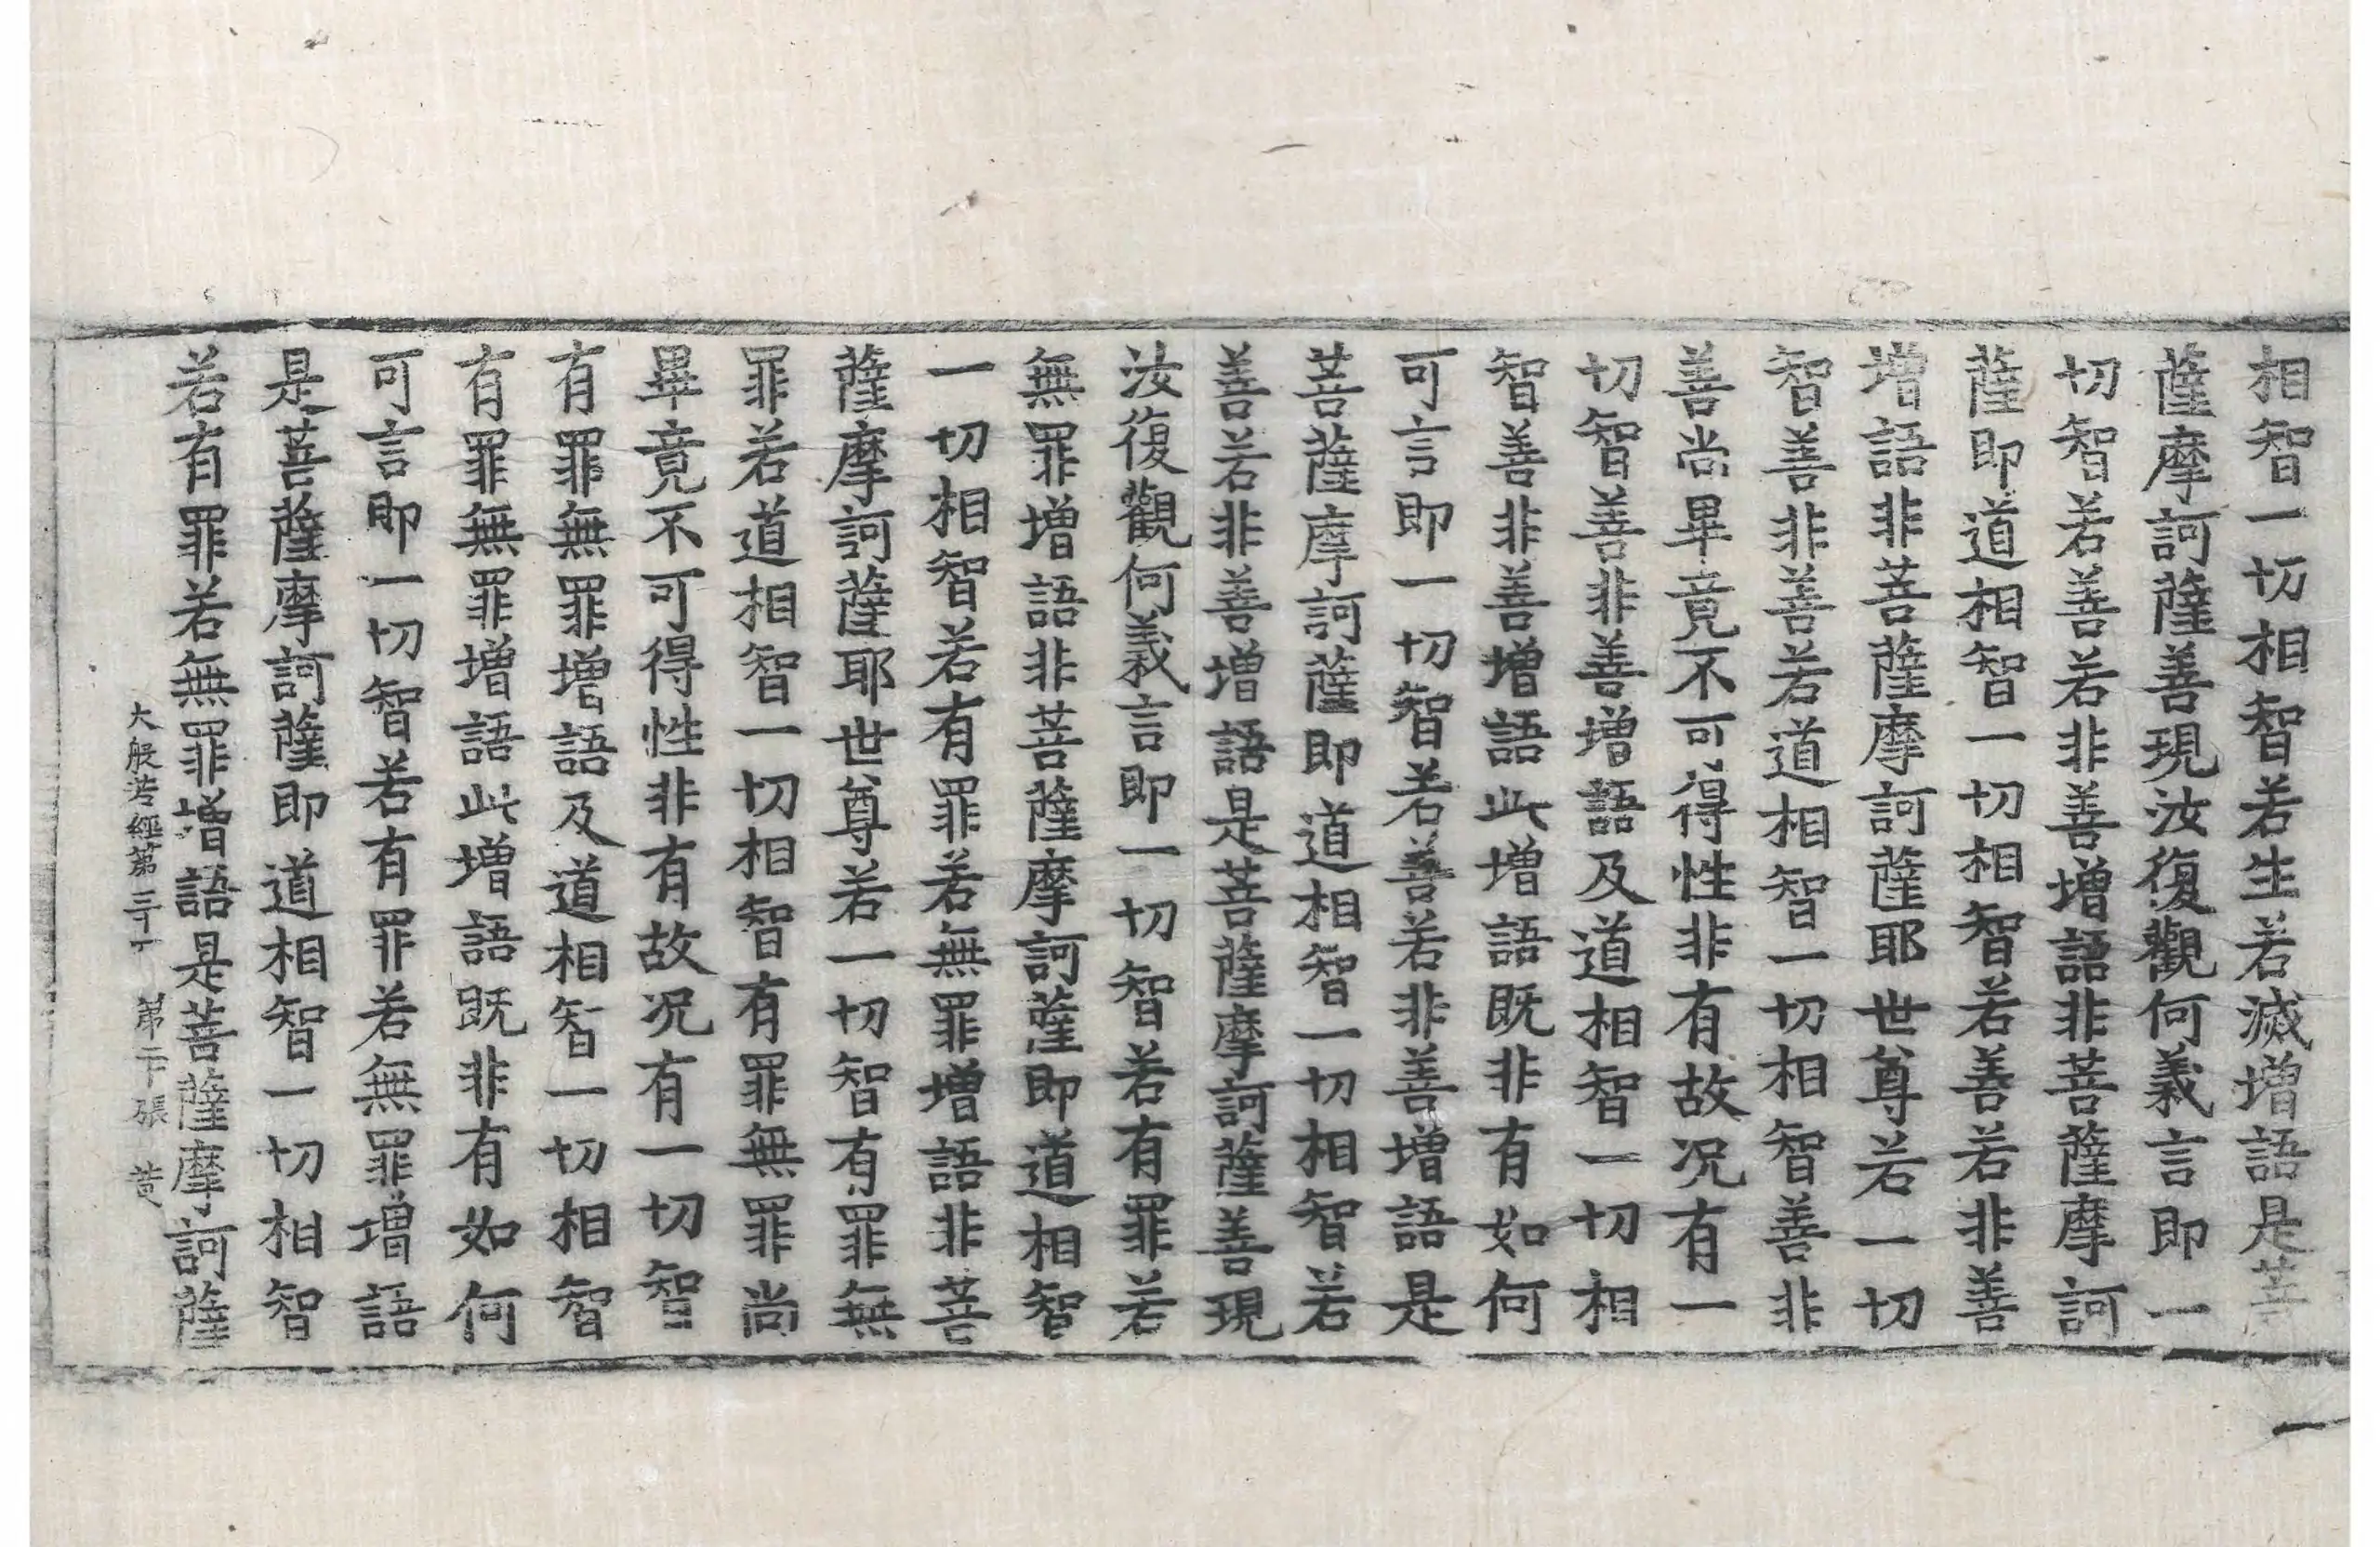 相智一切相智若生若滅增語是菩
薩摩訶薩善現汝復觀何義言即一
切智若善若非善增語非菩薩摩訶
薩即道相智一切相智若善若非善
增語非菩薩摩訶薩耶世尊若一切
智善非善若道相智一切相智善非
善尚畢竟不可得性非有故况有一
切智善非善增語及道相智一切相
智善非善增語此增語既非有如何
可言即一切智若善若非善增語是
菩薩摩訶薩即道相智一切相智若
善若非善增語是菩薩摩訶薩善現
汝復觀何義言即一切智若有罪若
無罪增語非菩薩摩訶薩即道相智
一切相智若有罪若無罪增語非菩
薩摩訶薩耶世尊若一切智有罪無
罪若道相智一切相智有罪無罪尚
畢竟不可得性非有故况有一切智
有罪無罪增語及道相智一切相智
有罪無罪增語此增語既非有如何
可言即一切智若有罪若無罪增語
是菩薩摩訶薩即道相智一切相智
若有罪若無罪增語是菩薩摩訶薩
大般若經第三十 第二十張 黄